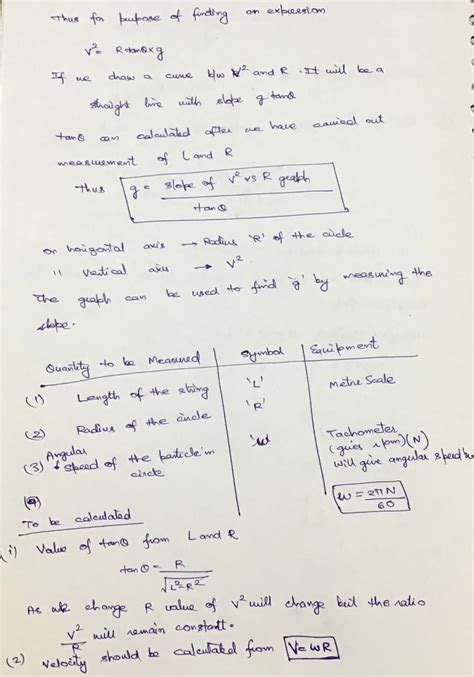 Thus for purpose of finding an expression
V² = R tanθ x g
If we draw a curve b/w V² and R. It will be a
straight line with slope g tanθ
tanθ can calculated after we have carried out
measurement of L and R
Thus g = slope of V² vs R graph / tanθ
on horizontal axis → Radius 'R' of the circle
" vertical axis → V².
The graph can be used to find 'g' by measuring the
slope.
Quantity to be Measured | Symbol | Equipment
(1) Length of the string 'L' Metre Scale
(2) Radius of the circle 'R'
(3) Angular speed of the particle in circle 'ω' Tachometer (gives rpm)(N)
will give angular speed by
(4) ω = 2πN / 60
To be calculated
(1) Value of tanθ from L and R
tanθ = R / √L²-R²
As we change R value of V² will change but the ratio
V²/R will remain constant.
(2) Velocity should be calculated from V = ωR